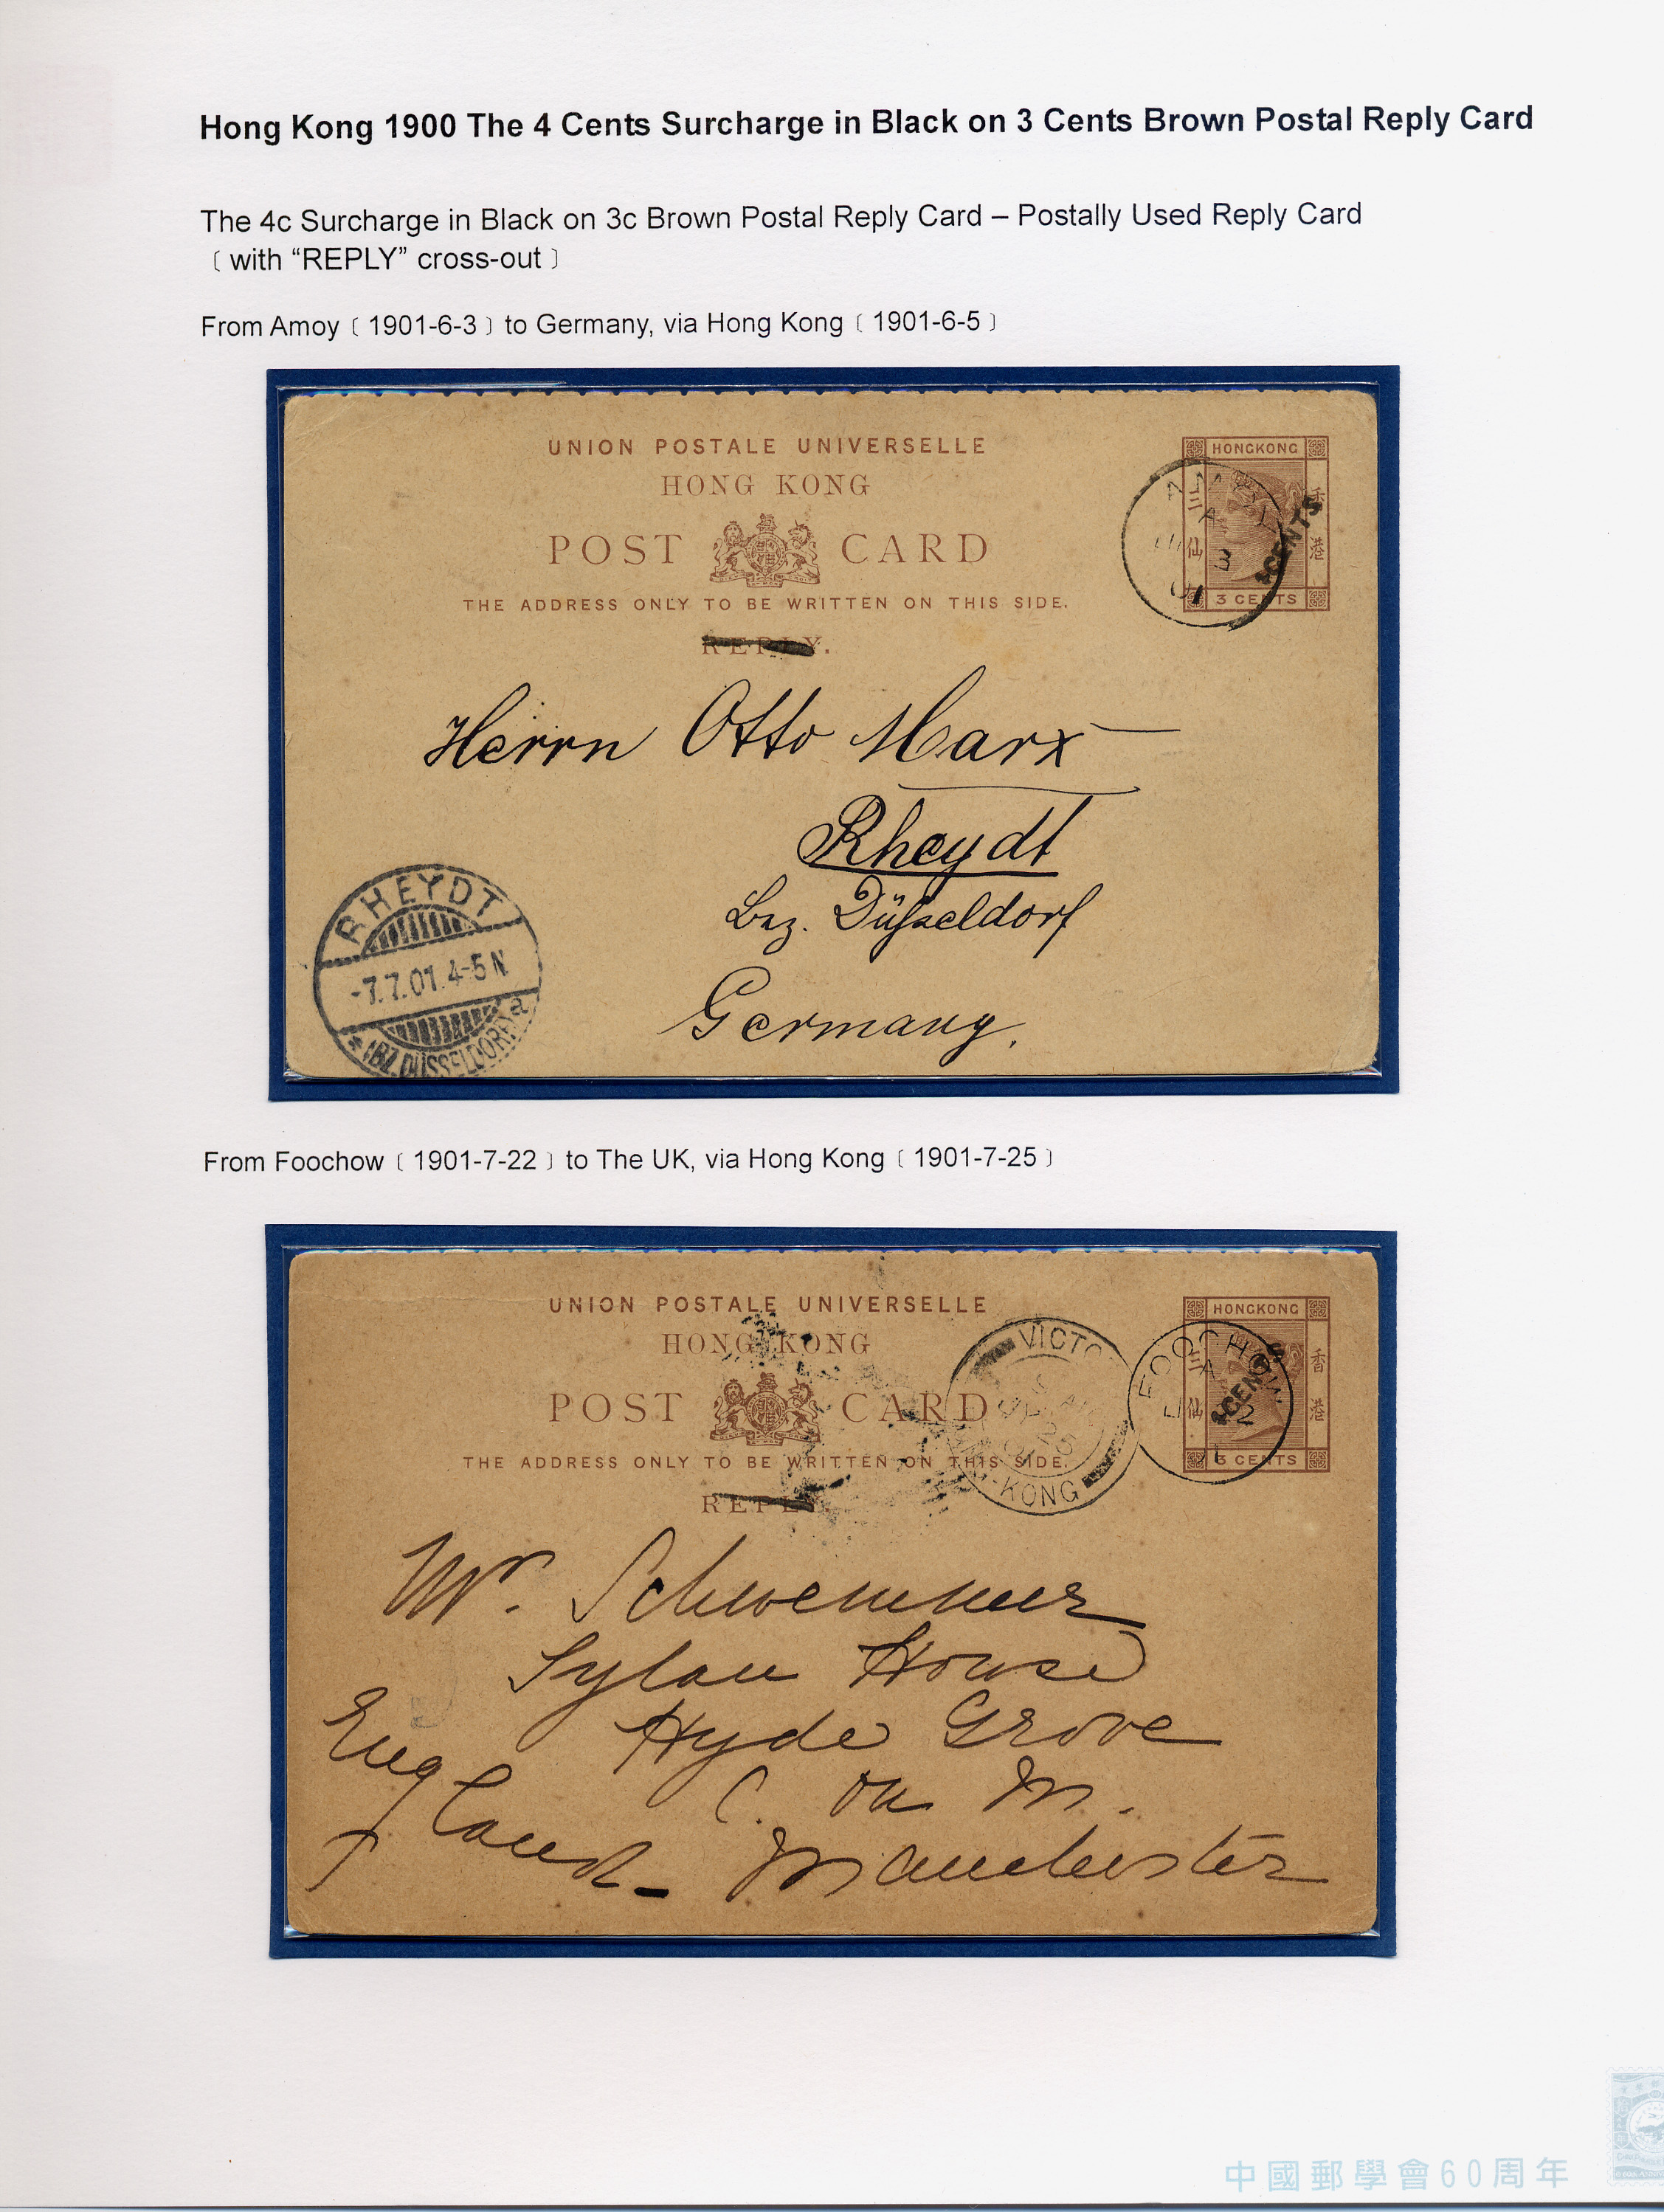 Hong Kong 1900 The 4 Cents Surcharge in Black on 3 Cents Brown Postal Reply Card
The 4c Surcharge in Black on 3c Brown Postal Reply Card – Postally Used Reply Card
﹝with “REPLY” cross-out﹞
From Amoy﹝1901-6-3﹞to Germany, via Hong Kong﹝1901-6-5﹞
UNION POSTALE UNIVERSELLE
HONG KONG
POST CARD
THE ADDRESS ONLY TO BE WRITTEN ON THIS SIDE.
REPLY.
HONGKONG
三仙
香港
CENTS
3 CENTS
AMOY
A
3
01
Herrn Otto Marx
Rheydt
Bez. Düsseldorf
Germany.
RHEYDT
-7.7.01.4-5N
a
*(BZ.DÜSSELDORF)
From Foochow﹝1901-7-22﹞to The UK, via Hong Kong﹝1901-7-25﹞
UNION POSTALE UNIVERSELLE
HONG KONG
POST CARD
THE ADDRESS ONLY TO BE WRITTEN ON THIS SIDE.
REPLY
HONGKONG
三仙
香港
CENTS
3 CENTS
FOOCHOW
A
VICTO
25
01
KONG
Mr. Schwemmer
Sylan House
Hyde Grove
C. on M.
Manchester
England
中國郵學會60周年